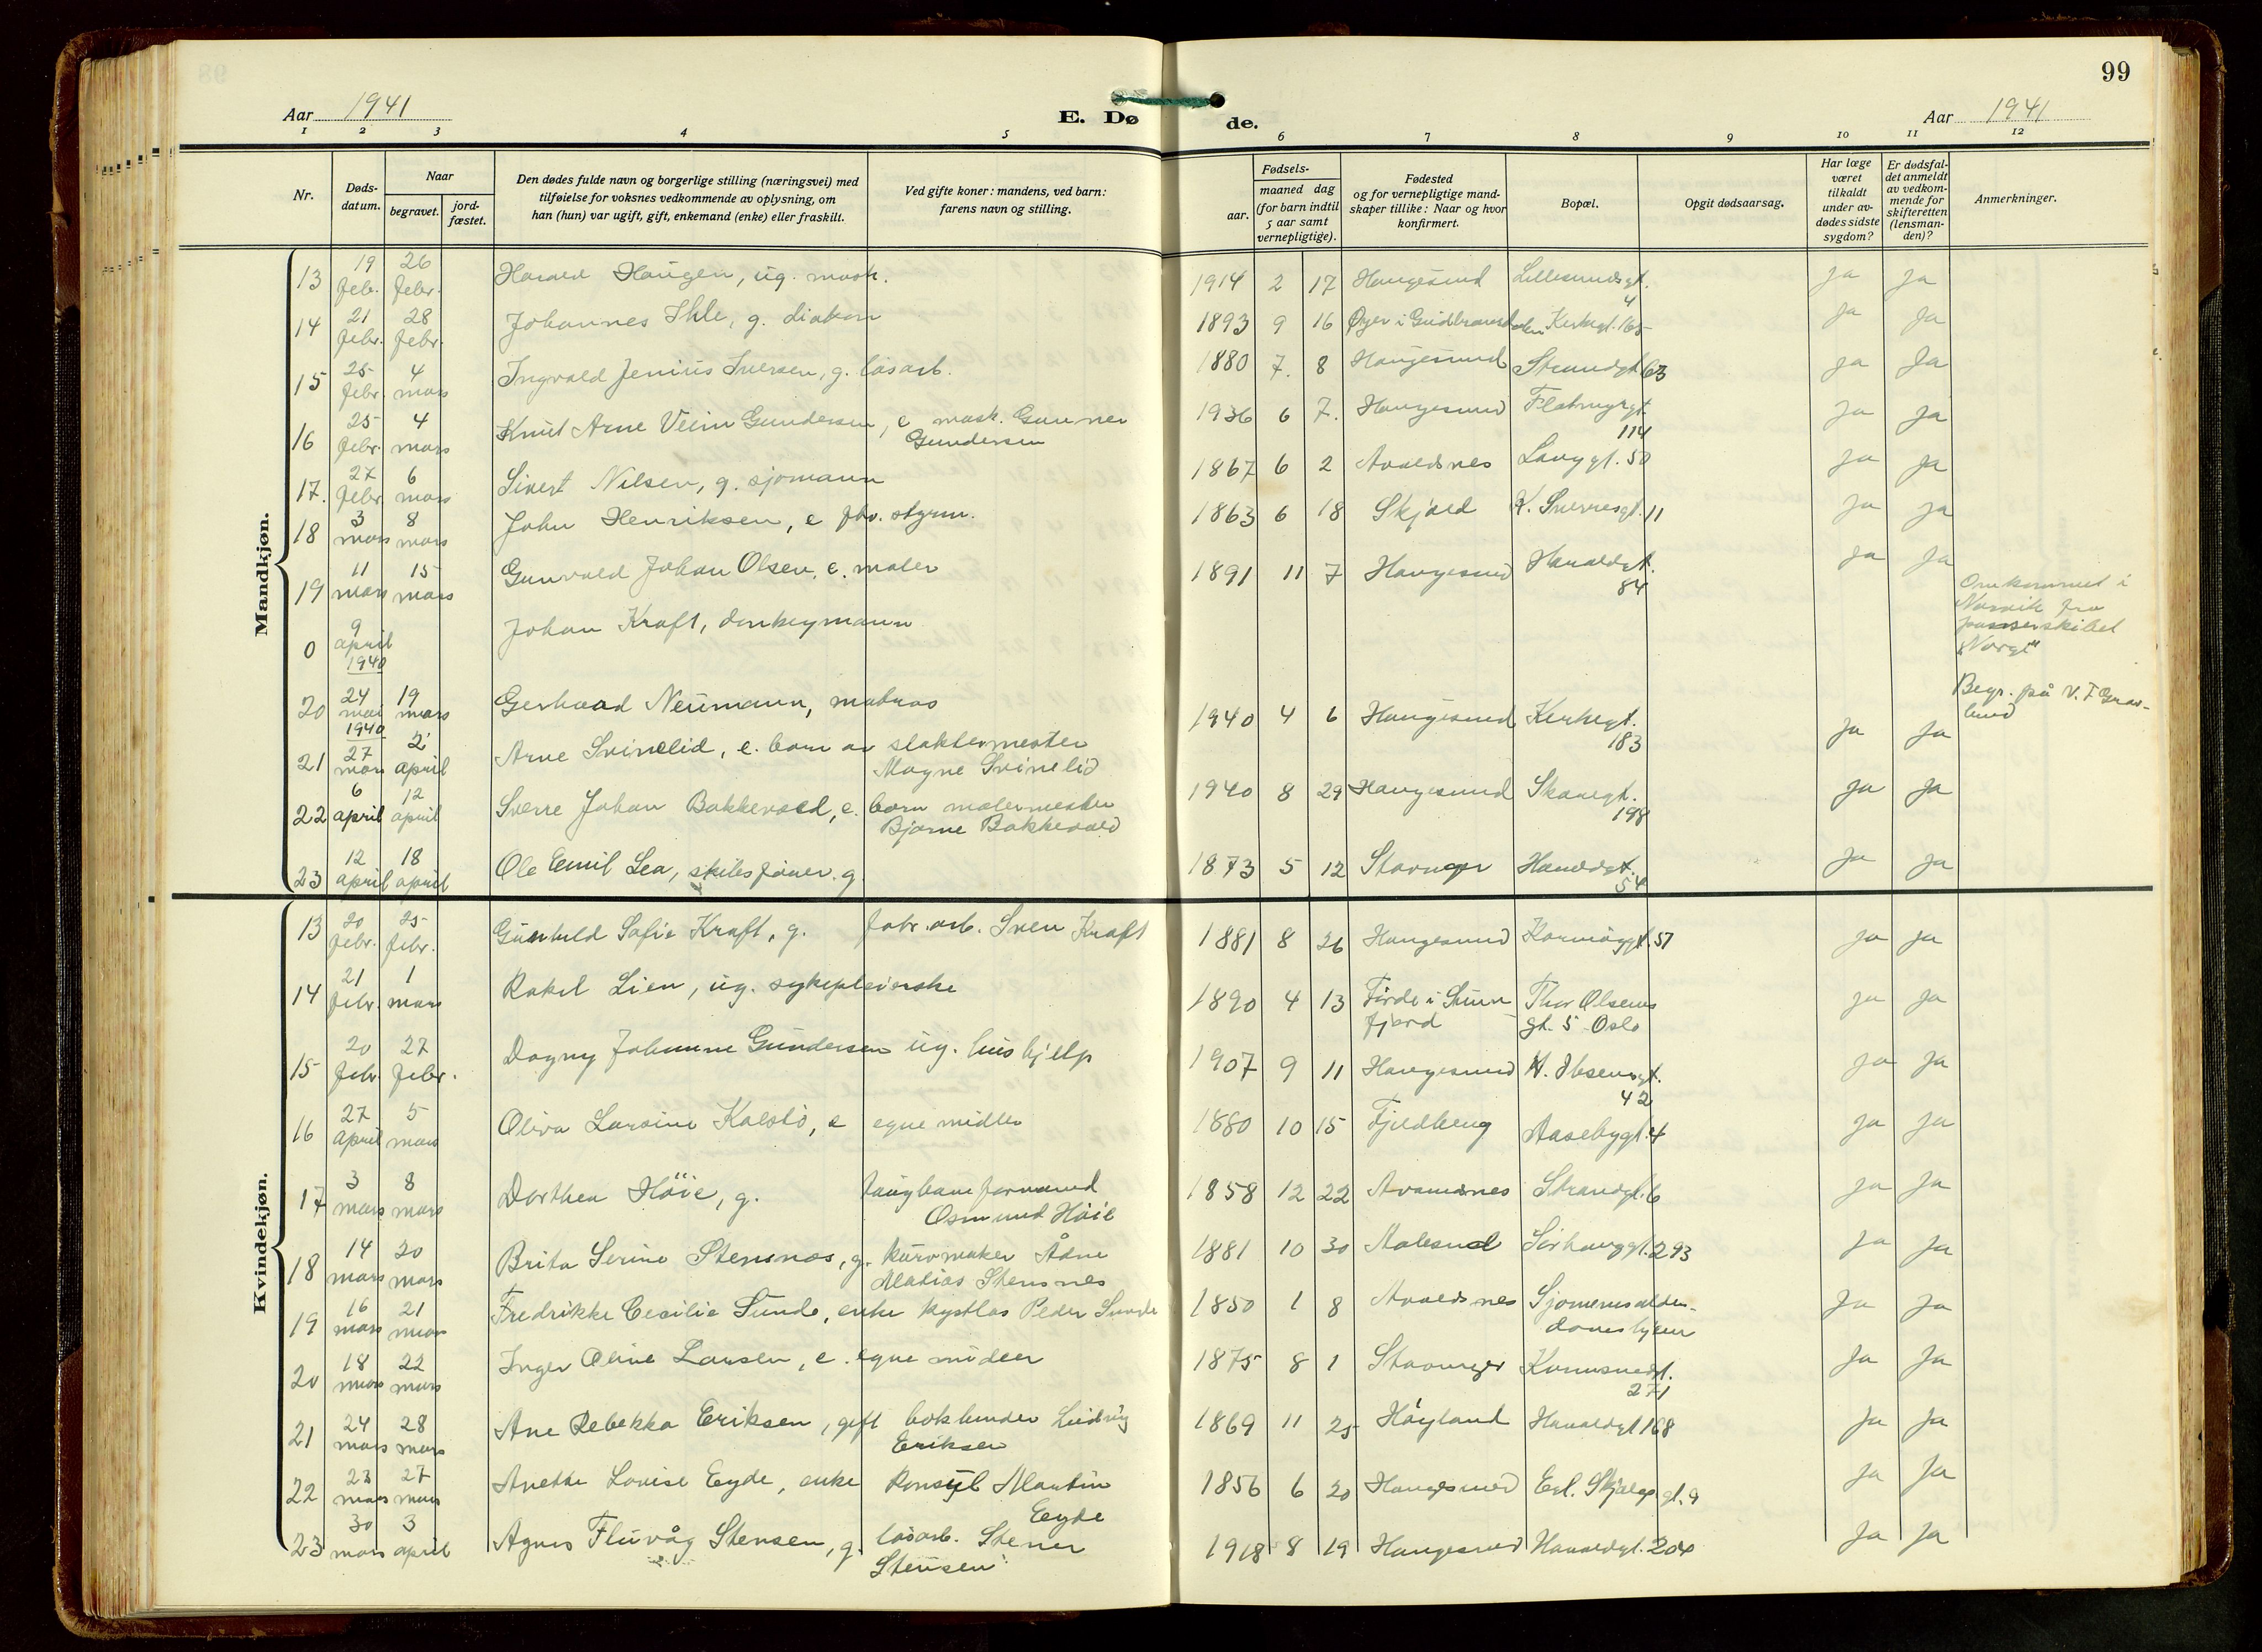 99
Aar 1941
E. Dø
de.
Aar 1941
1 2 3 4 5 6 7 8 9 10 11 12
Nr.
Døds-
datum.
Naar
begravet.
jord-
fæstet.
Den dødes fulde navn og borgerlige stilling (næringsvei) med
tilføielse for voksnes vedkommende av oplysning, om
han (hun) var ugift, gift, enkemand (enke) eller fraskilt.
Ved gifte koner: mandens, ved barn:
farens navn og stilling.
Fødsels-
aar.
maaned dag
(for barn indtil
5 aar samt
vernepligtige).
Fødested
og for vernepligtige mand-
skaper tillike: Naar og hvor
konfirmert.
Bopæl.
Opgit dødsaarsag.
Har læge
været
tilkaldt
under av-
dødes sidste
sygdom?
Er dødsfal-
det anmeldt
av vedkom-
mende for
skifteretten
(lensman-
den)?
Anmerkninger.
Mandkjøn.
13 19 febr. 26 febr. Harald Haugen, ug. mask. 1914 2 17 Haugesund Lillesundsgt. 4 ja ja
14 21 febr. 28 febr. Johannes Ihle, g. diakon 1893 9 16 Øyer i Gudbrandsdalen Kirkegt. 165 ja ja
15 25 febr. 4 mars Ingvald Jenius Iversen, g. løsarb. 1880 7. 8 Haugesund Strandgt. 63 ja ja
16 25 febr. 4 mars Knut Arne Veim Gundersen, e mask. Gunner
Gundersen 1936 6 7. Haugesund Flotmyrgt. 114 ja ja
17. 27 febr. 6 mars Sivert Nilsen, g. sjømann 1867 6 2 Avaldsnes Langgt. 50 ja ja
18 3 mars 8 mars John Henriksen, e fhv. styrm. 1863 6 18 Skjold K. Sverresgt. 11 ja ja
19 11 mars 15 mars Gunvald Johan Olsen, e. maler 1891 11 7 Haugesund Haraldgt. 84 ja ja
0 9 april 1940 Johan Kraft, donkeymann Omkommet i
Narvik fra
panserskibet
"Norge"
20 24 mai 1940 19 mars Gerhard Neumann, matros Begr. på V. F Grav-
lund
21 27 mars 2 april Arne Svinelid, e. barn av slaktermester
Magne Svinelid 1940 4 6 Haugesund Kirkegt. 183 ja ja
22 6 april 12 april Sverre Johan Bakkevold, e. barn malermester
Bjarne Bakkevold 1940 8 29 Haugesund Skaregt. 198 ja ja
23 12 april 18 april Ole Emil Lea, skibsfører. g. 1873 5 12 Stavanger Haraldgt. 54 ja ja
Kvindekjøn.
13 20 febr. 25 febr. Gunhild Sofie Kraft, g. fabr. arb. Sven Kraft 1881 8 26 Haugesund Karmøygt. 57 ja ja
14 21 febr. 1 mars Rakel Lien, ug. sykepleierske 1890 4 13 Førde i Sunn
fjord Thor Olsens
gt. 5 Oslo ja ja
15 20 febr. 27 febr. Dagny Johanne Gundersen ug. hushjelp 1907 9 11 Haugesund H. Ibsensgt. 42 ja ja
16 27 april 5 mars Oliva Larsine Kalstø, e egne midler 1880 10 15 Fjeldberg Aasebygt. 4 ja ja
17 3 mars 8 mars Dorthea Høie, g. taugbaneformand
Osmund Høie 1858 12 22 Strandgt. 6 ja ja
18 14 mars 20 mars Brita Serine Stensnes, g. kurvmaker Ådne
Matias Stensnes 1881 10 30 Aalesund Sørhauggt. 293 ja ja
19 16 mars 21 mars Fredrikke Cecilie Sunde, enke kystlos Peder Sunde 1850 1 8 Avaldsnes Sjømennsalder-
domshjem ja ja
20 18 mars 22 mars Inger Oline Larsen, e. egne midler 1875 8 1 Stavanger Karmsundgt. 271 ja ja
21 24 mars 28 mars Ane Rebekka Eriksen, gift bokbinder Ludvig
Eriksen 1869 11 25 Høyland Haraldgt 168 ja ja
22 23 mars 27 mars Anette Lovise Eyde, enke konsul Martin
Eyde 1856 6 20 Haugesund Eri. Skjalgs gt. 9 ja ja
23 30 mars 3 april Agnes Fluvåg Stensen, g. løsarb. Stener
Stensen 1918 8 19 Haugesund Haraldgt. 204 ja ja